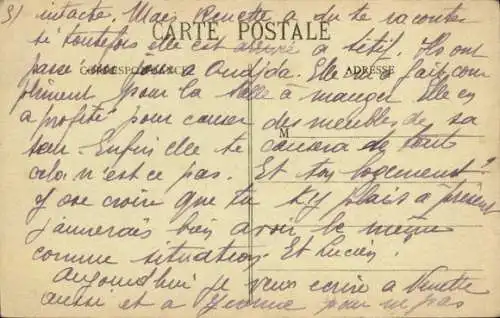 3) intacte. Mais Venette a du te raconter
CARTE POSTALE
si toutefois elle est à Sétif. Ils ont
passé un jour à Oudjda. Elle m'a fait com
CORRESPONDANCE
ADRESSE
pliment pour la salle à manger. Elle en
a profité pour causer des meubles de sa
M
sœur. Enfin elle te causera de tout
cela n'est ce pas. Et ton logement?
J'ose croire que tu t'y plais à présent
j'aimerais bien avoir la même
comme situation. Et Lucien.
Aujourd'hui je veux écrire à Venette
aussi et a Jeanne pour ne pas